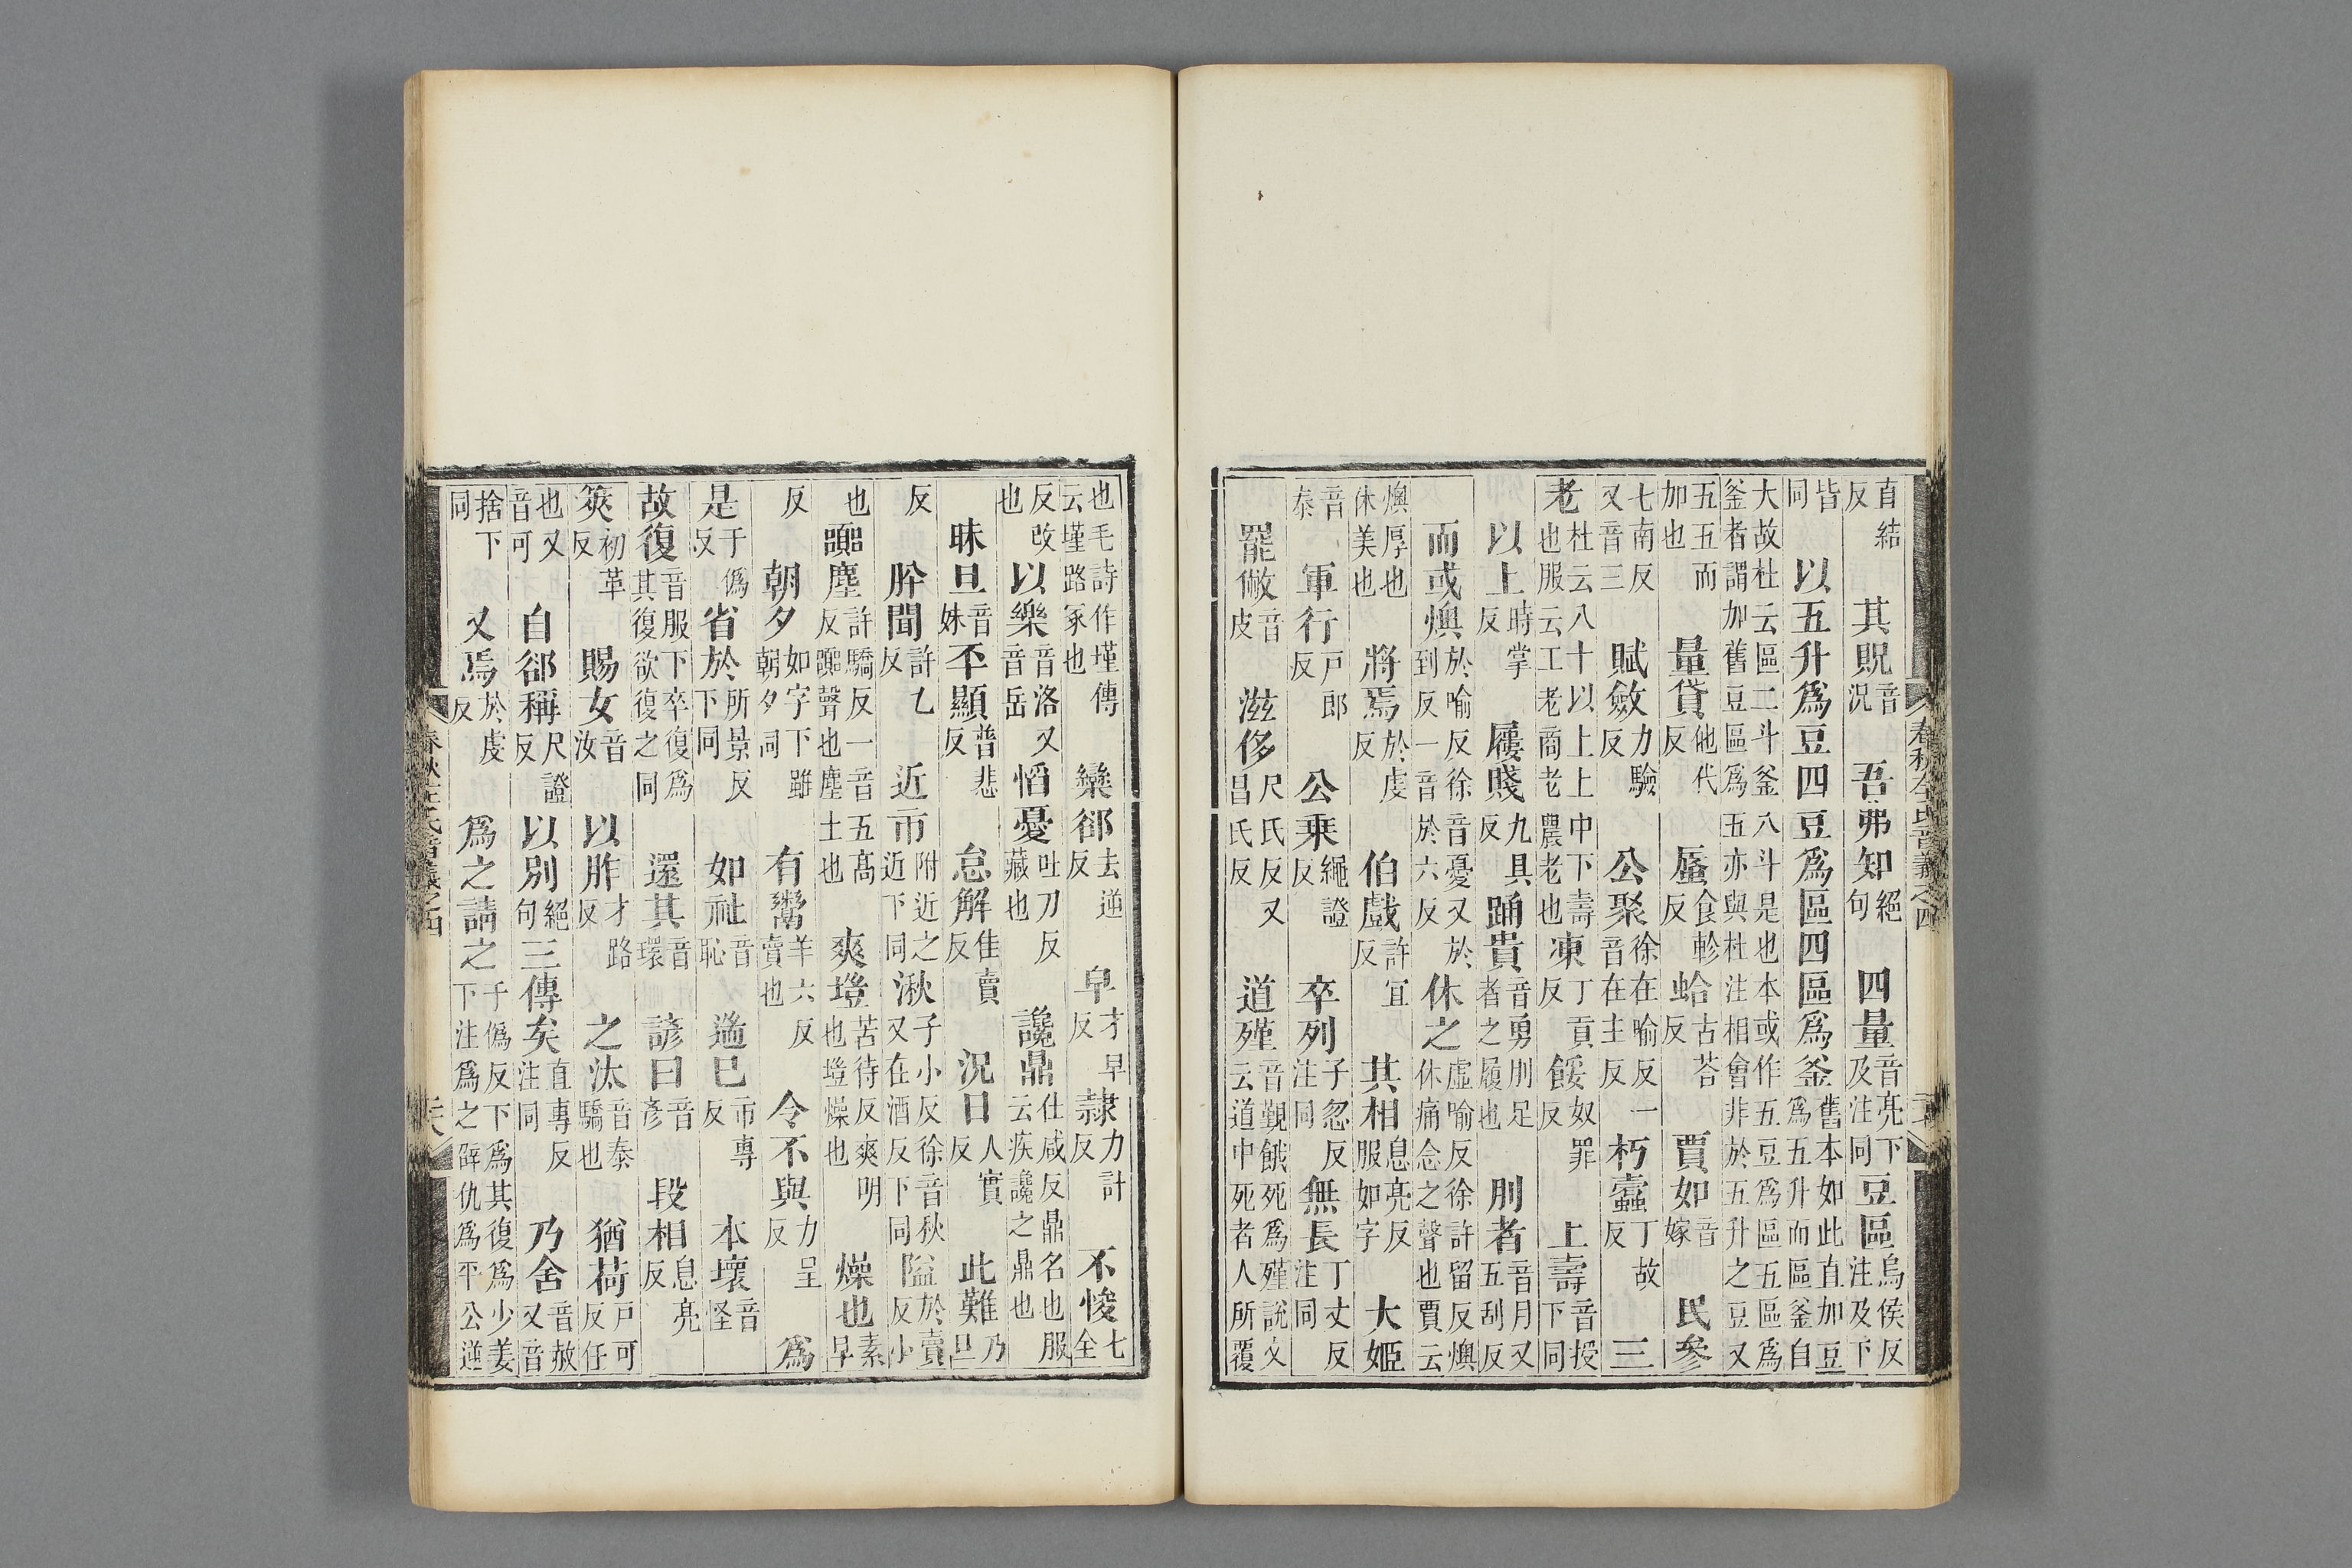 直結反 其貺音況 吾弗知絕句 四量音亮下及注同 豆區烏侯反注及下
皆同 以五升爲豆四豆爲區四區爲釜舊本如此直加豆爲五升而區釜自
大故杜云區二斗釜八斗是也本或作五豆爲區五區爲釜者謂加舊豆區爲五亦與杜注相會非於五升之豆又
五五而加也 量貸他代反 蜃食軫反 蛤古荅反 賈如音嫁 民參
七南反又音三 賦斂力驗反 公聚徐在喻反一音在主反 朽蠹丁故反 三
老杜云八十以上上中下壽也服云工老商老農老也 凍丁貢反 餒奴罪反 上壽音授下同
以上時掌反 屨賤九具反 踊貴音勇刖足者之屨也 刖者音月又五刮反
而或燠於喻反徐音憂又於到反一音於六反 休之虛喻反徐許留反燠休痛念之聲也賈云
燠厚也休美也 將焉於虔反 伯戲許宜反 其相息亮反服如字 大姬
音泰 軍行戸郎反 公乗繩證反 卒列子忽反注同 無長丁丈反注同
罷敝音皮 滋侈尺氏反又昌氏反 道殣音覲餓死爲殣說文云道中死者人所覆
春秋左氏音義之四
也毛詩作墐傳云墐路冢也 欒郤去逆反 皁才早反 隸力計反 不悛七全
反改也 以樂音洛又音岳 慆憂吐刀反藏也 讒鼎仕咸反鼎名也服云疾讒之鼎也
昧旦音妹 丕顯普悲反 怠解佳賣反 況日人實反 此難乃旦
反 肸聞許乙反 近市附近之近下同 湫子小反徐音秋又在酒反下同 隘於賣反小
也 嚻塵許驕反一音五高反嚻聲也塵土也 爽塏苦待反爽明也塏燥也 燥也素早
反 朝夕如字下雖朝夕同 有鬻羊六反賣也 令不與力呈反 爲
是于僞反 省於所景反下同 如祉音恥 遄已市專反 本壞音怪
故復音服下卒復爲其復欲復之同 還其音環 諺曰音彥 叚相息亮反
筴初革反 賜女音汝 以胙才路反 之汰音泰驕也 猶荷戸可反任
也又音可 自郤稱尺證反 以別絕句 三傳矣直專反注同 乃舍音赦又音
捨下同 又焉於虔反 爲之請之于僞反下爲其復爲少姜下注爲之辟仇爲平公逆
春秋左氏音義之四